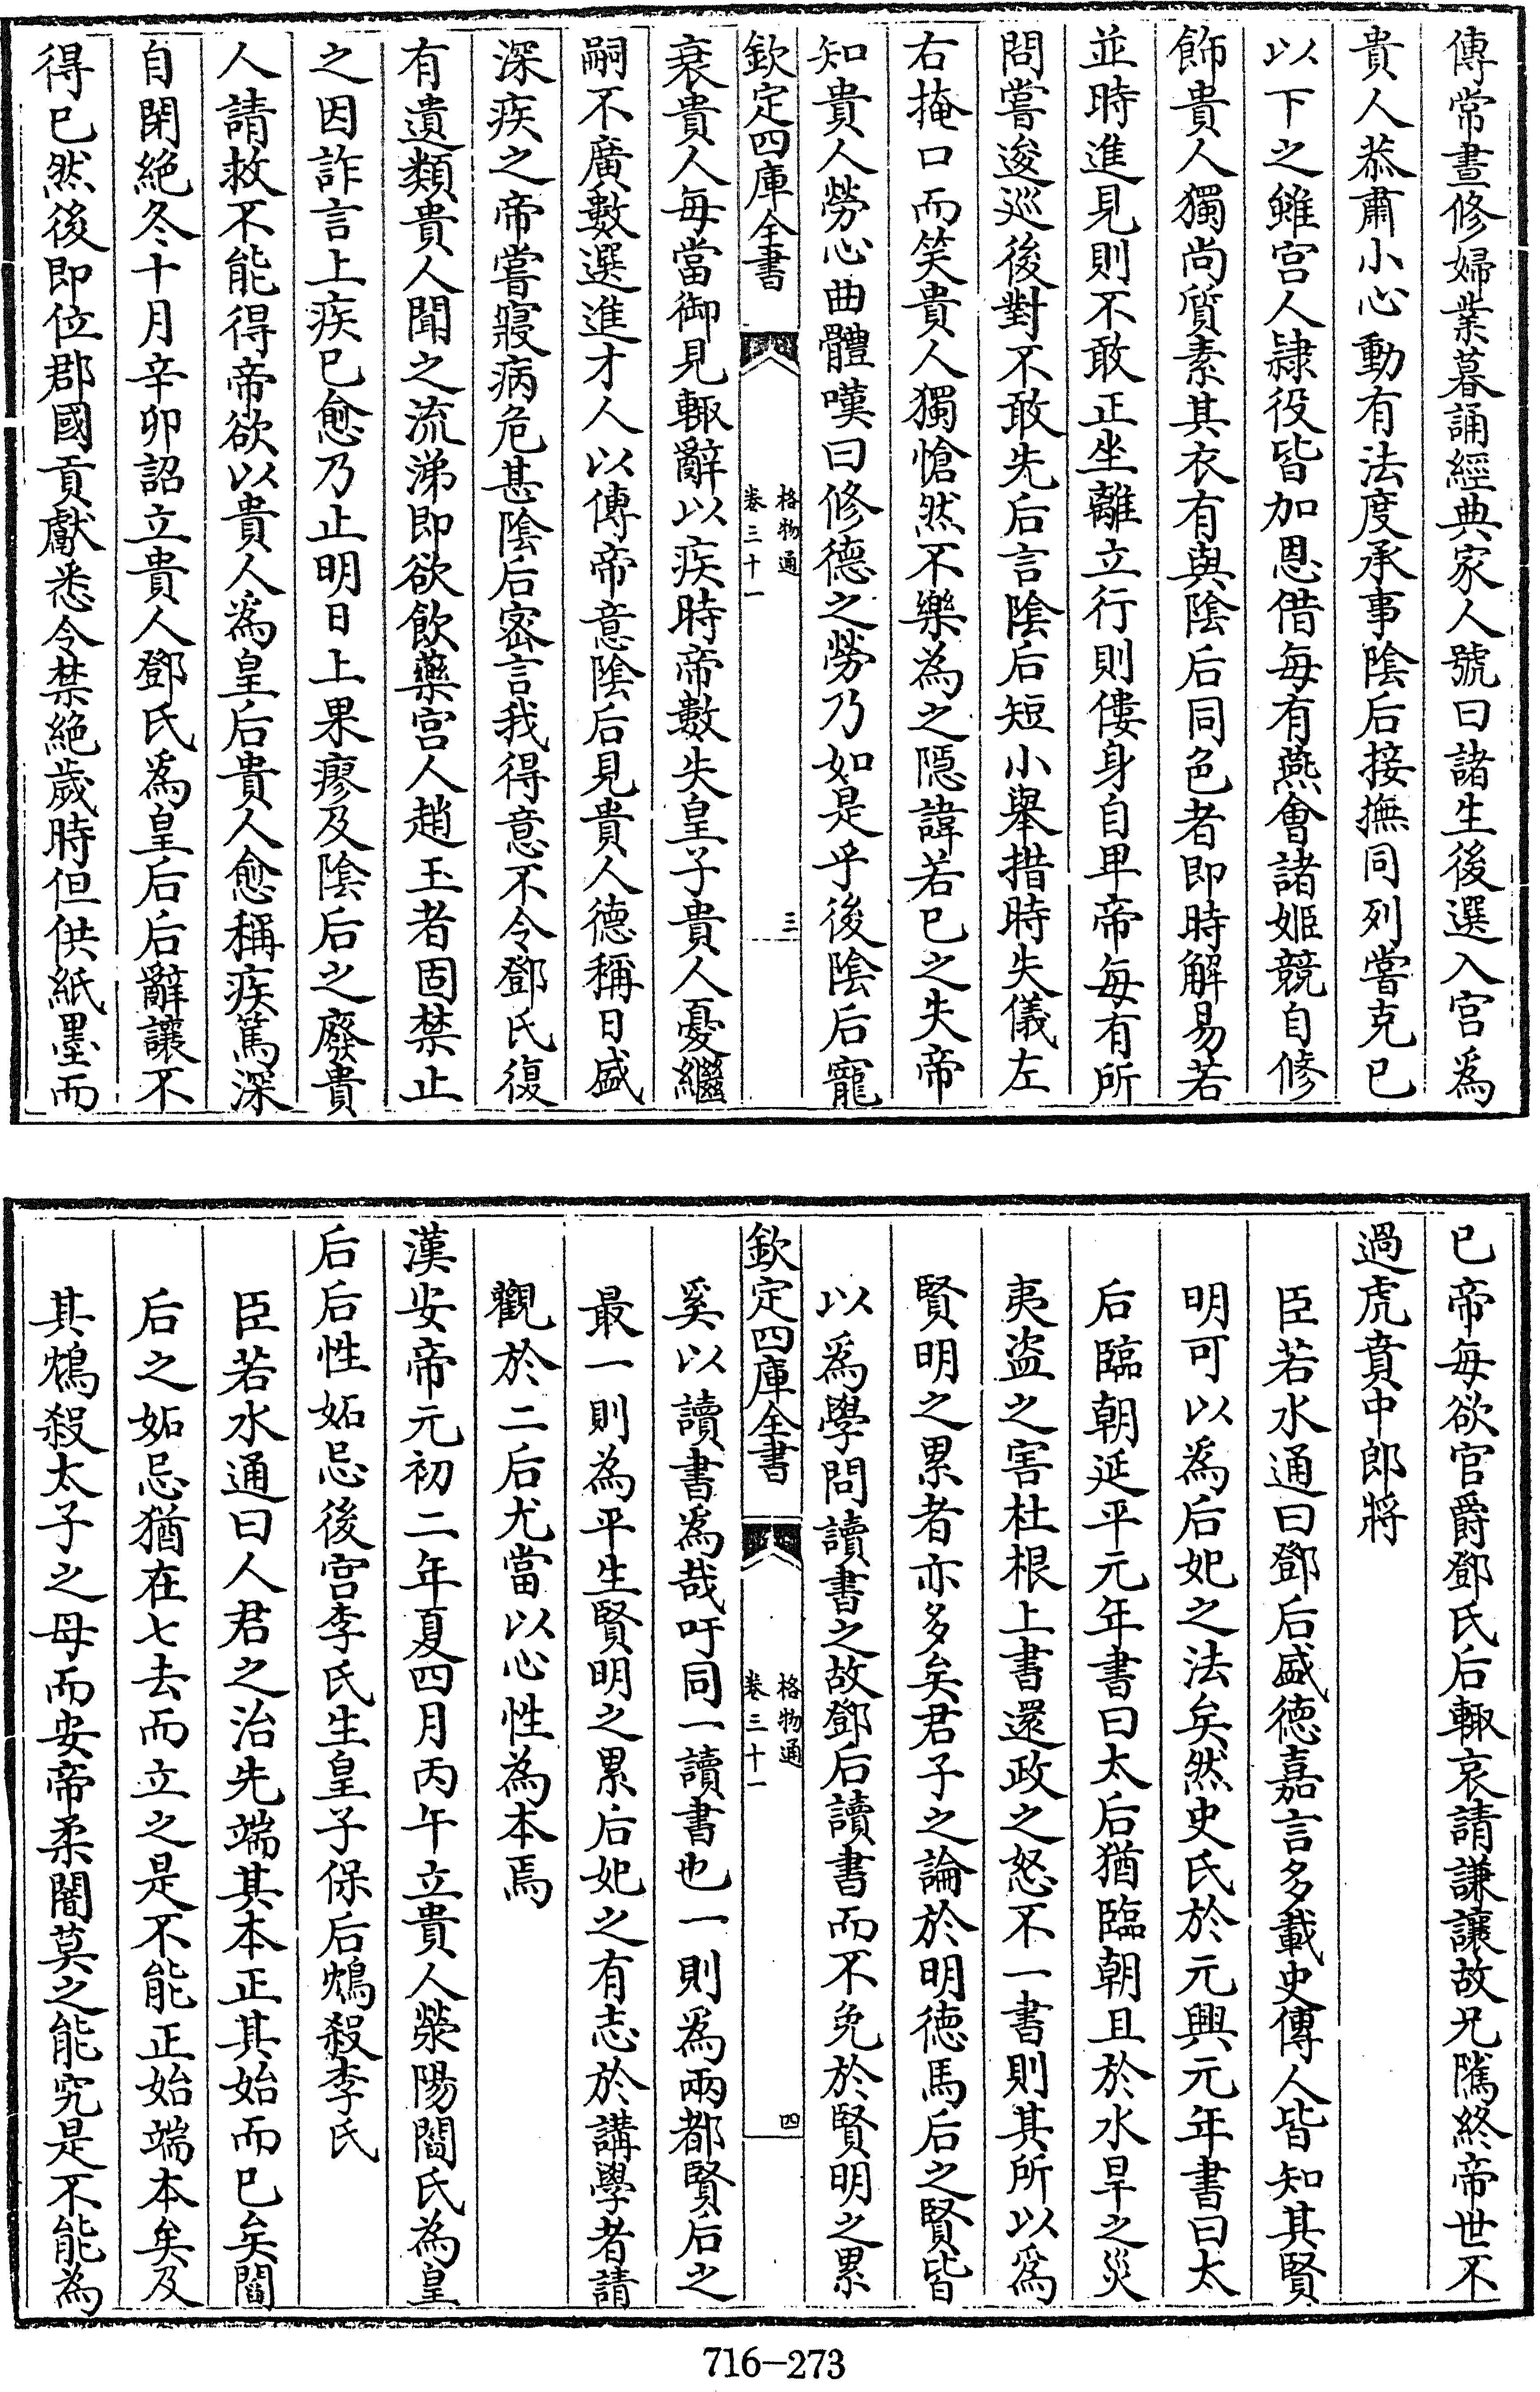 傳常晝修婦業暮誦經典家人號曰諸生後選入宫爲
貴人恭肅小心動有法度承事陰后接撫同列嘗克已
以下之雖宫人隷役皆加恩借每有燕會諸姬競自修
飾貴人獨尚質素其衣有與陰后同色者即時解易若
並時進見則不敢正坐離立行則僂身自卑帝每有所
問嘗逡巡後對不敢先后言陰后短小舉措時失儀左
右掩口而笑貴人獨愴然不樂為之隱諱若已之失帝
知貴人勞心曲體嘆曰修德之勞乃如是乎後陰后寵
欽定四庫全書
格物通
卷三十一
三
衰貴人每當御見輙辭以疾時帝數失皇子貴人憂繼
嗣不廣數選進才人以傳帝意陰后見貴人德稱日盛
深疾之帝嘗寢病危甚陰后密言我得意不令鄧氏復
有遺類貴人聞之流涕即欲飲藥宫人趙玉者固禁止
之因詐言上疾已愈乃止明日上果瘳及陰后之廢貴
人請救不能得帝欲以貴人爲皇后貴人愈稱疾篤深
自閉絶冬十月辛卯詔立貴人鄧氏為皇后后辭讓不
得已然後即位郡國貢獻悉令禁絶歲時但供紙墨而
已帝每欲官爵鄧氏后輙哀請謙讓故兄隲終帝世不
過虎賁中郎將
臣若水通曰鄧后盛德嘉言多載史傳人皆知其賢
明可以為后妃之法矣然史氏於元興元年書曰太
后臨朝延平元年書曰太后猶臨朝且於水旱之災
夷盜之害杜根上書還政之怒不一書則其所以爲
賢明之累者亦多矣君子之論於明德馬后之賢皆
以爲學問讀書之故鄧后讀書而不免於賢明之累
欽定四庫全書
格物通
卷三十一
四
奚以讀書為哉吁同一讀書也一則爲兩都賢后之
最一則為平生賢明之累后妃之有志於講學者請
觀於二后尤當以心性為本焉
漢安帝元初二年夏四月丙午立貴人滎陽閻氏為皇
后后性妬忌後宫李氏生皇子保后鴆殺李氏
臣若水通曰人君之治先端其本正其始而已矣閻
后之妬忌猶在七去而立之是不能正始端本矣及
其鴆殺太子之母而安帝柔闇莫之能究是不能為
716-273